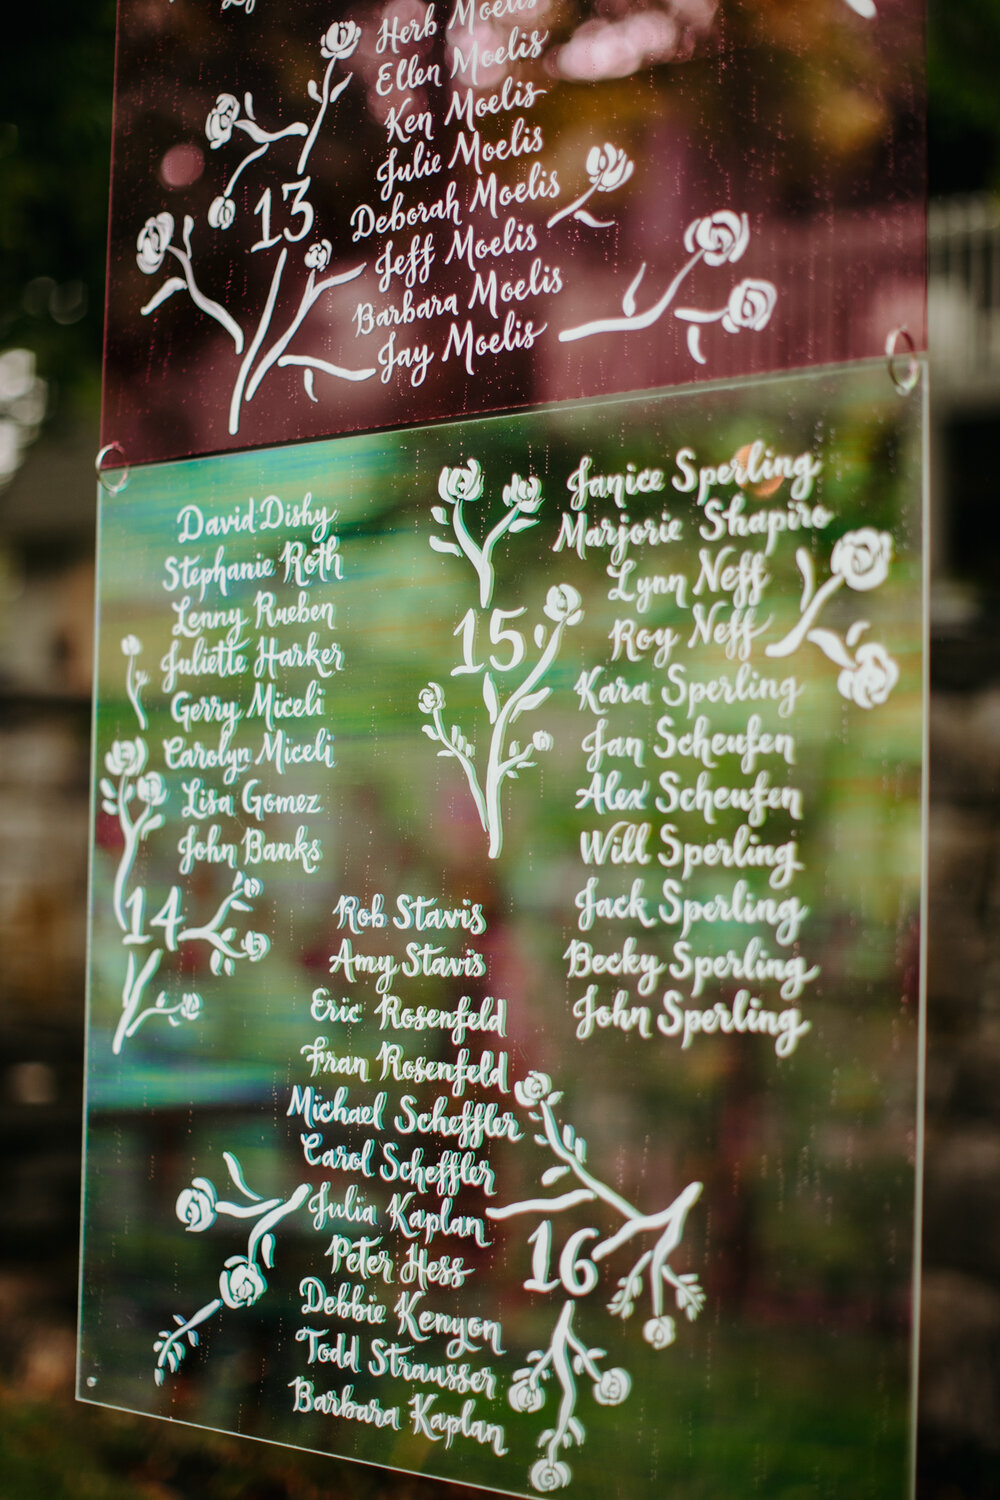 Herb Moelis
Ellen Moelis
Ken Moelis
Julie Moelis
Deborah Moelis
Jeff Moelis
Barbara Moelis
Jay Moelis
13
David Dishy
Stephanie Roth
Lenny Rueben
Juliette Harker
Gerry Miceli
Carolyn Miceli
Lisa Gomez
John Banks
14
Janice Sperling
Marjorie Shapiro
Lynn Neff
Roy Neff
Kara Sperling
Jan Scheufen
Alex Scheufen
Will Sperling
Jack Sperling
Becky Sperling
John Sperling
15
Rob Stavis
Amy Stavis
Eric Rosenfeld
Fran Rosenfeld
Michael Scheffler
Carol Scheffler
Julia Kaplan
Peter Hess
Debbie Kenyon
Todd Strausser
Barbara Kaplan
16